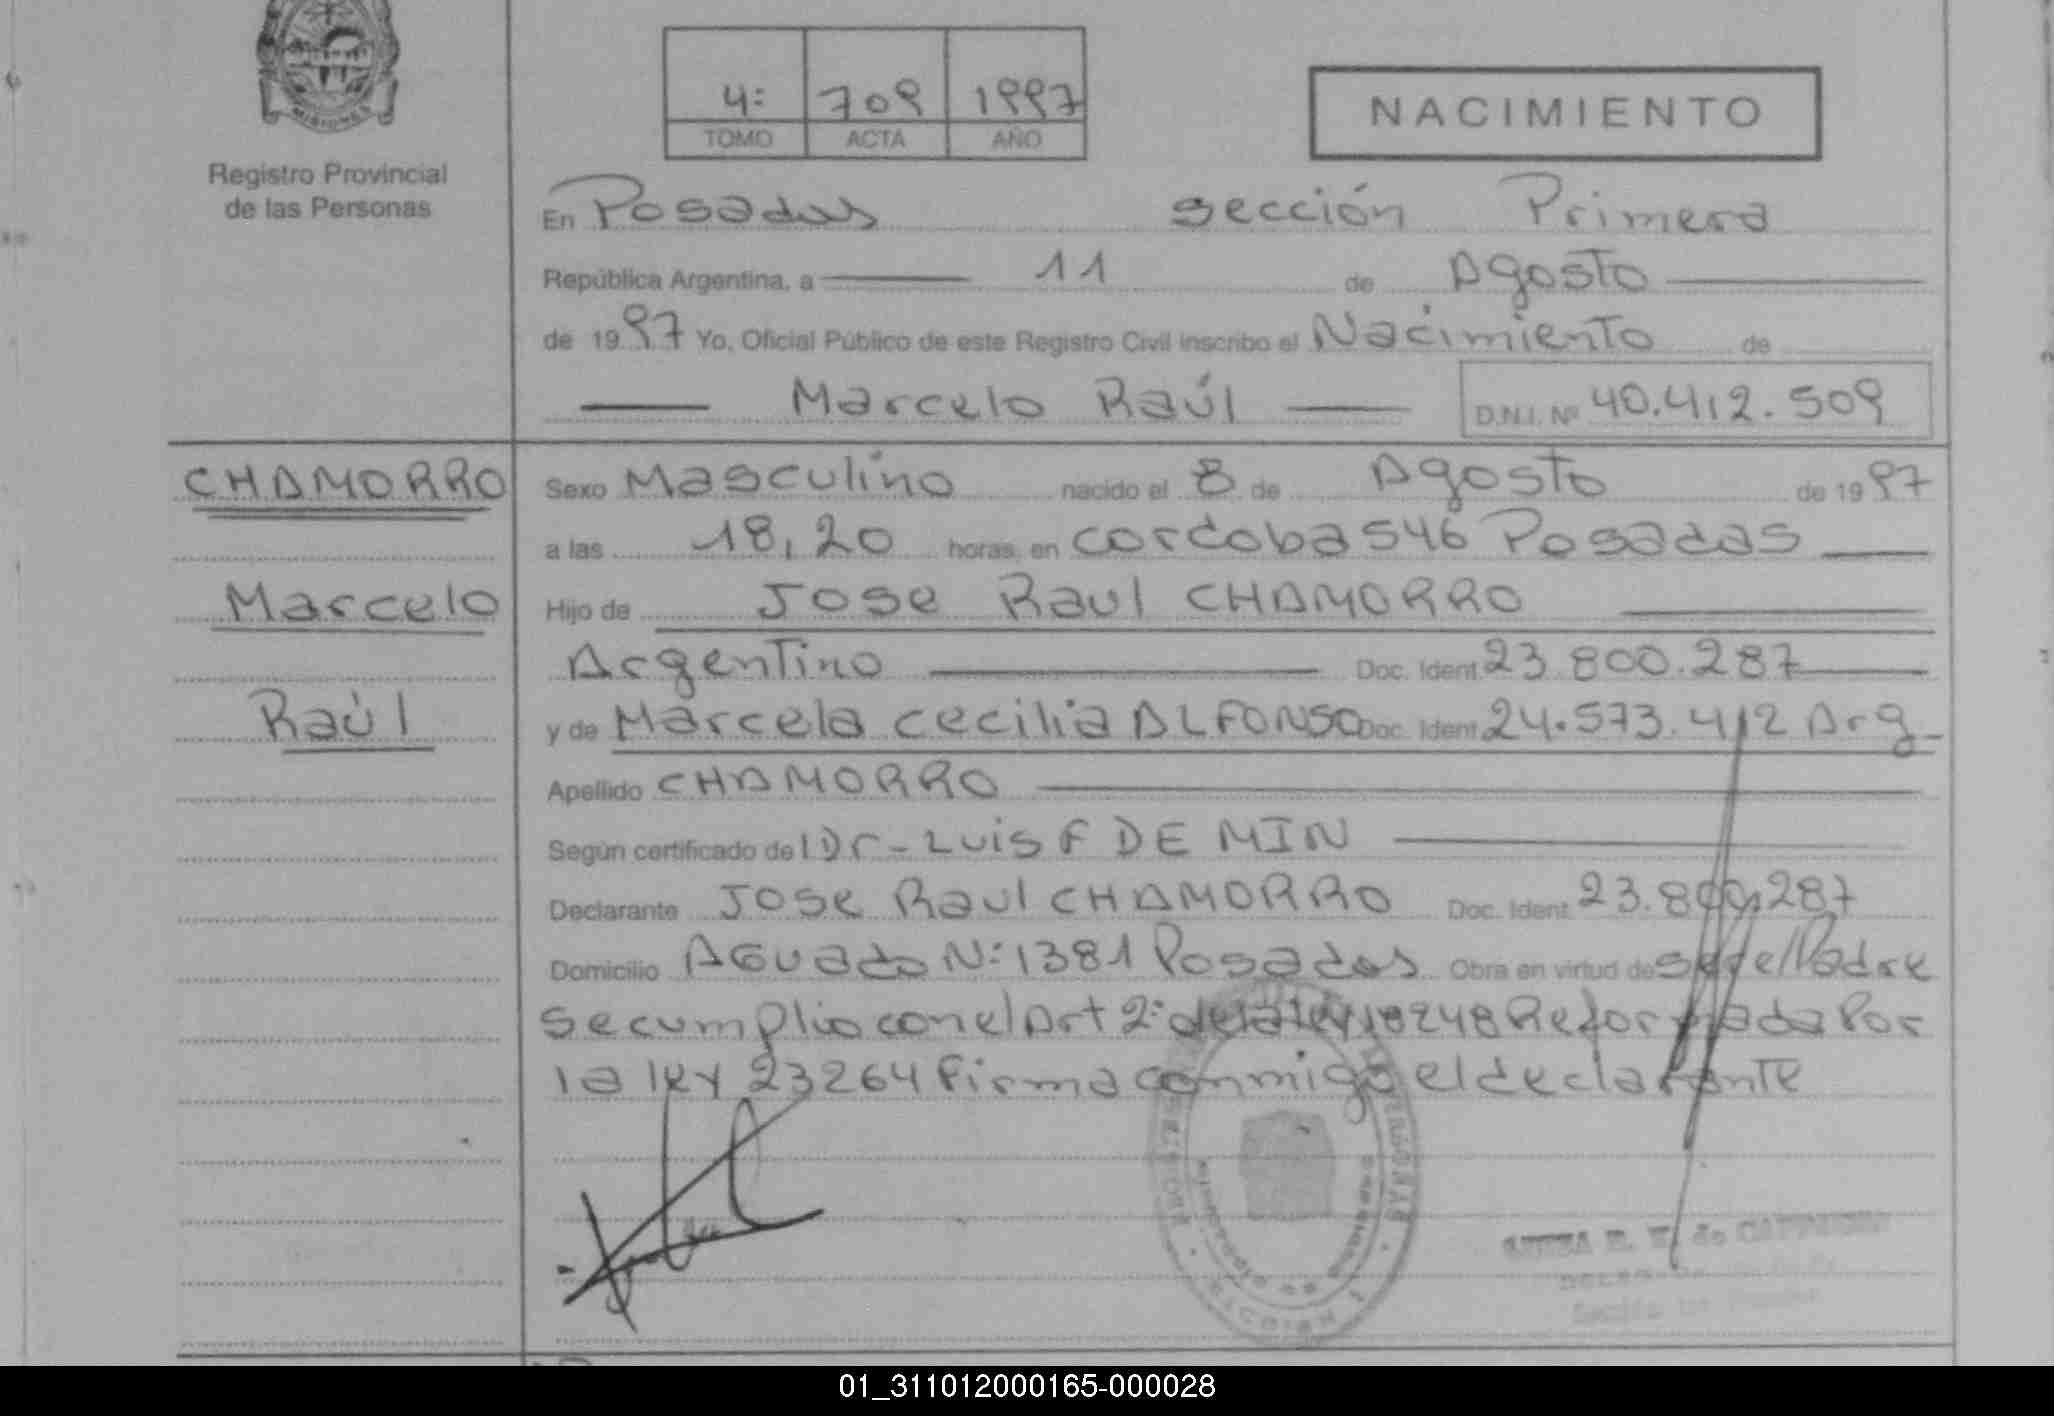 MISIONES
Registro Provincial
de las Personas
4: 709 1997
TOMO ACTA AÑO
NACIMIENTO
En Posadas sección Primera
República Argentina, a 11 de Agosto
de 1997 Yo, Oficial Público de este Registro Civil inscribo el Nacimiento de
Marcelo Raúl D.N.I. Nº 40.412.509
CHAMORRO
Marcelo
Raúl
Sexo Masculino nacido el 8 de Agosto de 1997
a las 18,20 horas, en cordoba 546 Posadas
Hijo de Jose Raul CHAMORRO
Argentino Doc. Ident. 23.800.287
y de Marcela cecilia ALFONSO Doc. Ident. 24.573.412 Arg.
Apellido CHAMORRO
Según certificado del Dr - Luis F DE MIN
Declarante Jose Raul CHAMORRO Doc. Ident. 23.800.287
Domicilio AGuado N: 1381 Posadas Obra en virtud de ser el Padre
se cumplio con el Art 2: de la ley 18248 Reformada Por
la ley 23264 firma conmigo el declarante
de CAFFERENA
01_311012000165-000028